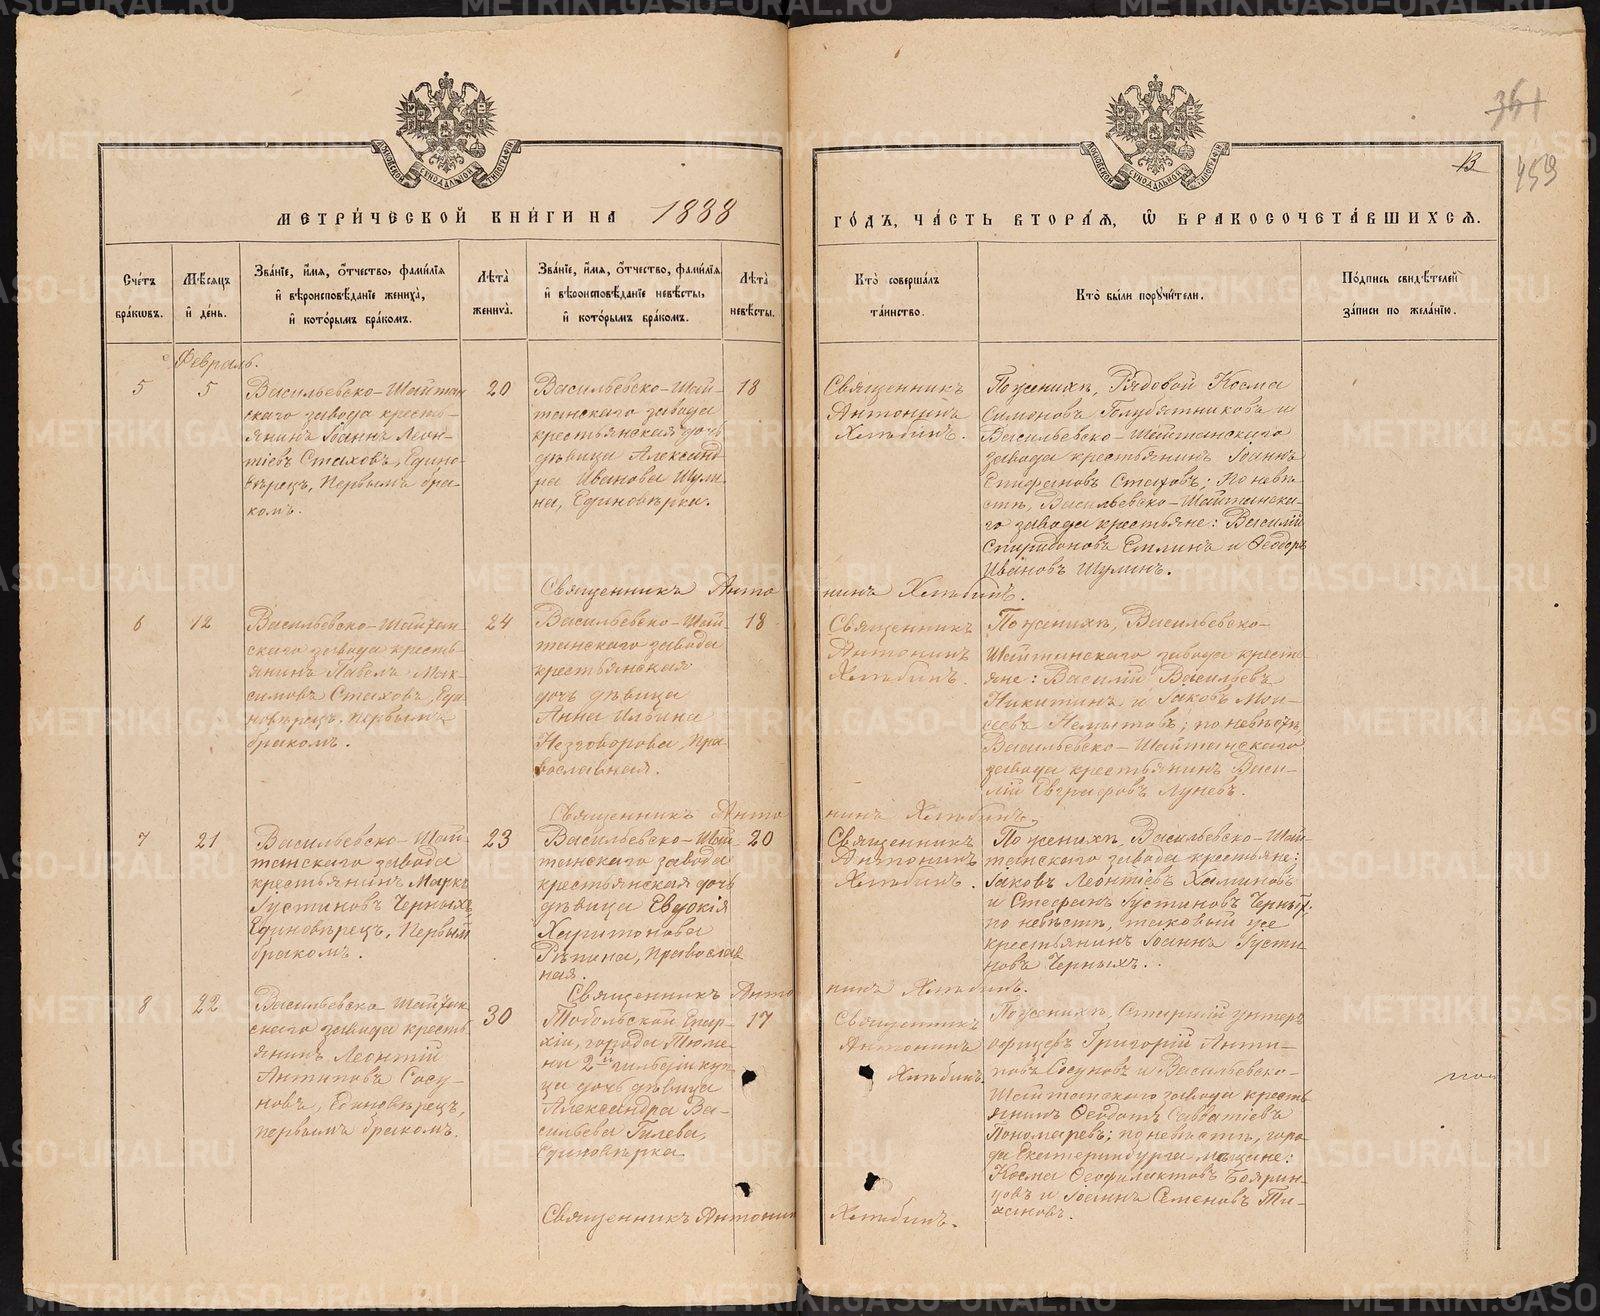 361
13
459
МЕТРИ́ЧЕСКОЙ КНИ́ГИ НА 1888
ГО́ДЪ, ЧА́СТЬ ВТОРА́Я, Ѡ҆ БРАКОСОЧЕТА́ВШИХСЯ.
МОСКОВСКОЙ СѴНОДАЛЬНОЙ ТИПОГРАФІИ
МОСКОВСКОЙ СѴНОДАЛЬНОЙ ТИПОГРАФІИ
Сче́тъ бра́кѡвъ.
Мѣ́сяцъ й де́нь.
Зва́нїе, и҆́мя, ѻ҆́тчество, фами́лїя й вѣроисповѣ́данїе жениха̀, й кото́рымъ бра́комъ.
Лѣ́та жениха̀.
Зва́нїе, и҆́мя, ѻ҆́тчество, фами́лїя й вѣроисповѣ́данїе невѣ́сты, й кото́рымъ бра́комъ.
Лѣ́та невѣ́сты.
Кто̀ соверша́лъ та́инство.
Кто̀ бы́ли порꙋчи́тели.
По́дпись свидѣ́телей за́писи по жела́нїю.
Февраль.
5
5
Васильевско-Шайтан
скаго завода кресть-
янинъ Іоаннъ Леон-
тіевъ Стаховъ, Едино-
вѣрецъ, Первымъ бра-
комъ.
20
Васильевско-Шай-
танскаго завода
крестьянская дочь
дѣвица Александ-
ра Иванова Шули-
на, Единовѣрка.
18
Священникъ
Антонинъ
Хлѣбинъ.
По женихѣ, Рядовой Косма
Симоновъ Голубятниковъ и
Васильевско-Шайтанскаго
завода крестьянинъ Іоаннъ
Епифановъ Стаховъ; По невѣ-
стѣ, Васильевско-Шайтанска-
го завода крестьяне: Василій
Спиридоновъ Емлинъ и Ѳеодоръ
Ивановъ Шулинъ.
Священникъ Анто
нинъ Хлѣбинъ.
6
12
Васильевско-Шайтан-
скаго завода кресть-
янинъ Павелъ Мак-
симовъ Стаховъ, Еди-
новѣрецъ. первымъ
бракомъ.
24
Васильевско-Шай-
танскаго завода
крестьянская
дочь дѣвица
Анна Ильина
Незговорова, Пра-
вославная.
18
Священникъ
Антонинъ
Хлѣбинъ.
По женихѣ, Васильевско-
Шайтанскаго завода кресть
яне: Василій Васильевъ
Никитинъ и Іаковъ Мои-
сеевъ Немытовъ; по невѣстѣ,
Васильевско-Шайтанскаго
завода крестьянинъ Васи-
лій Евграфовъ Луневъ.
Священникъ Анто
нинъ Хлѣбинъ.
7
21
Васильевско-Шай-
танскаго завода
крестьянинъ Маркъ
Іустиновъ Черныхъ,
Единовѣрецъ, Первым
бракомъ.
23
Васильевско-Шай
танскаго завода
крестьянская дочь
дѣвица Евдокія
Харитонова
Рѣпина, Православ
ная.
20
Священникъ
Антонинъ
Хлѣбинъ.
По женихѣ, Васильевско-Шай
танскаго завода крестьяне:
Іаковъ Леонтіевъ Халиновъ
и Стефанъ Іустиновъ Черных;
по невѣстѣ, таковый же
крестьянинъ Іоаннъ Іусти
новъ Черныхъ.
Священникъ Анто
нинъ Хлѣбинъ.
8
22
Васильевско Шайтан
скаго завода кресть
янинъ Леонтій
Антиповъ Сосу-
новъ, Единовѣрецъ,
первымъ бракомъ.
30
Тобольской Епар-
хіи, города Тюме-
ни 2й гильдіи куп-
ца дочь дѣвица
Александра Ва-
сильева Гилева,
Единовѣрка.
17
Священникъ
Антонинъ
Хлѣбинъ.
По женихѣ, Старшій унтеръ
офицеръ Григорій Анти-
повъ Сосуновъ и Васильевско-
Шайтанскаго завода кресть
янинъ Ѳеодотъ Савватіевъ
Пономаревъ; по невѣстѣ, горо-
да Екатеринбурга мѣщане:
Косма Ѳеофилактовъ Боярин-
цовъ и Іоаннъ Семеновъ Ти-
хановъ.
Священникъ Антонин
Хлѣбинъ.
METRIKI.GASO-URAL.RU